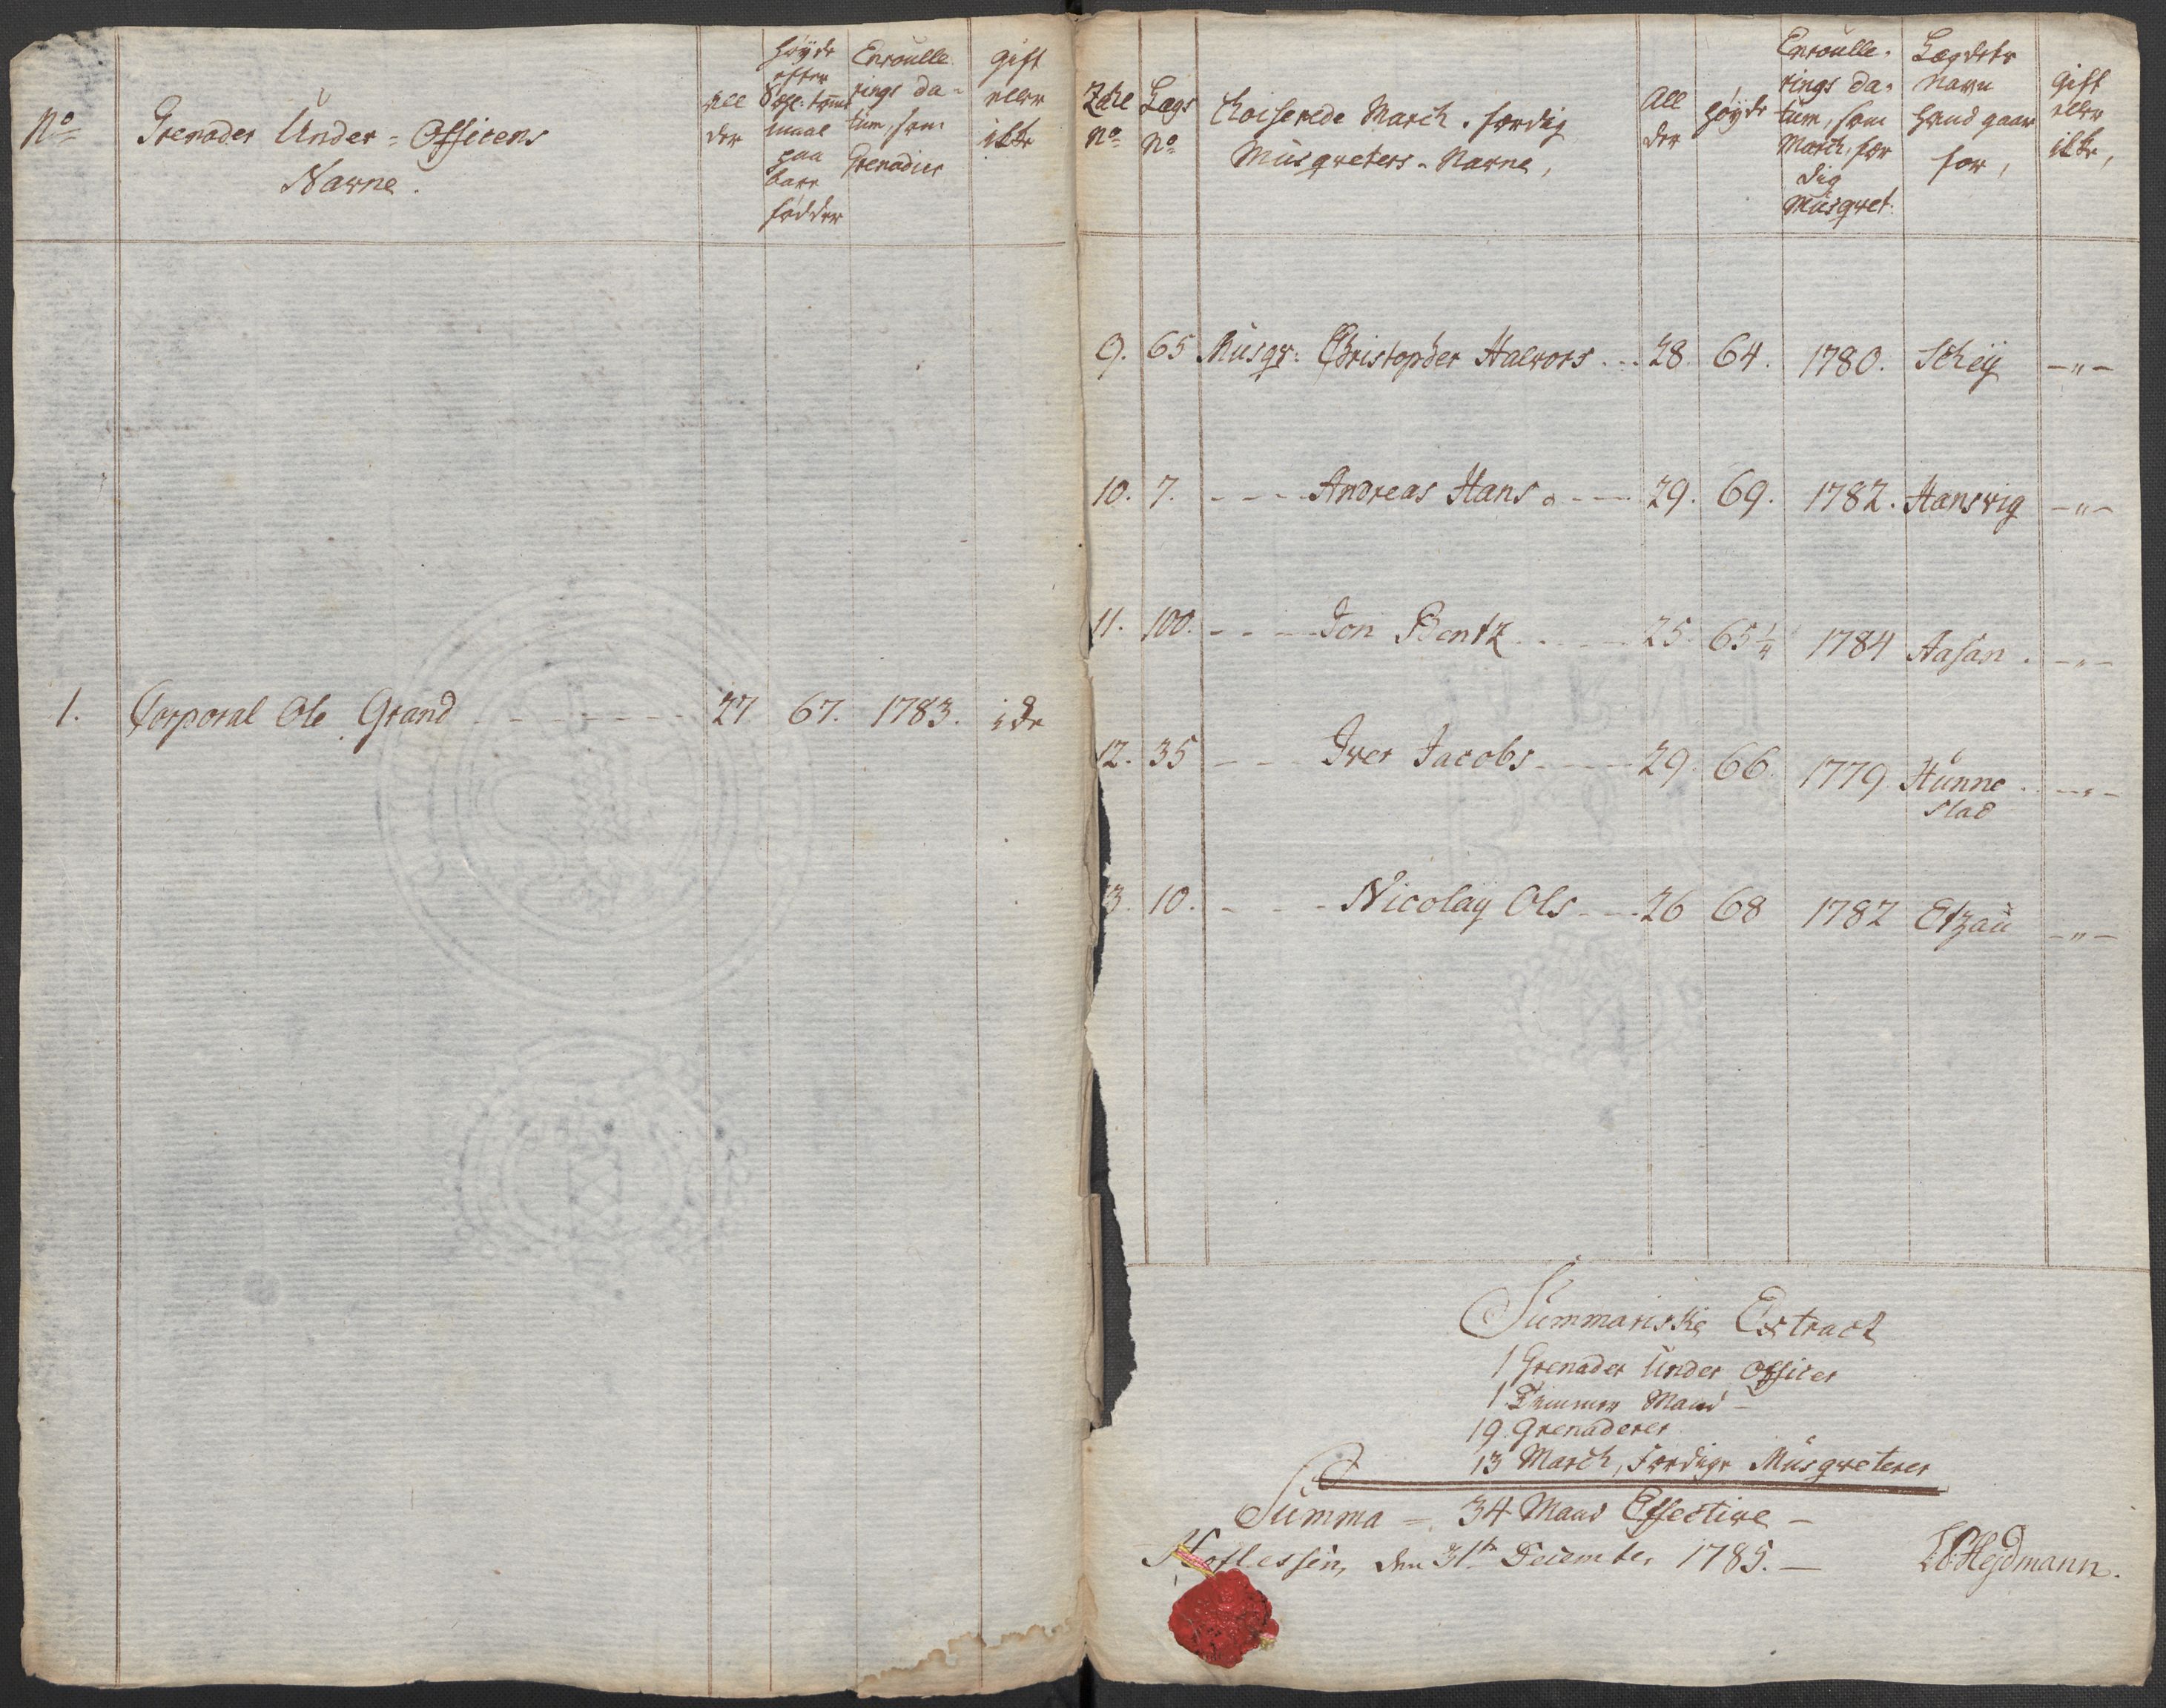 No
Grenader Under-Officers
Navne.
All
der
høyde
efter
tom
maal
paa
bare
fødder
Enroulle
rings da-
tum, som
Grenadier
Gift
eller
ikke
1. Corporal Ole Grand 27 67. 1783. ide
Zahl
No
Lægs
No
Choiserede March. færdig
Musqveters-Navne,
All
der
høyde
Enroulle-
rings da-
tum, som
March, fær
dig
Musqvet.
Lægdets
Navn
hand gaar
for,
Gift
eller
ikke,
9. 65 Musqv: Christopher Halvors 28 64. 1780. Schey -"-
10. 7. Andreas Hans. 29. 69. 1782. Hansvig -"-
11. 100. Jon Bentz 25 65 1/4 1784 Aasan. -"-
12. 35 Iver Jacobs 29 66. 1779 Hunne
stad -"-
13. 10. Nicolay Ols 26 68 1782 Etzau -"-
Summariske Extract
1 Grenader Under Officer
1 Timmer Mand
19 Grenaderer
13 March, Færdige Musqveterer
Summa = 34 Mand Effective -
den 31te December 1785. -
Hejdmann.